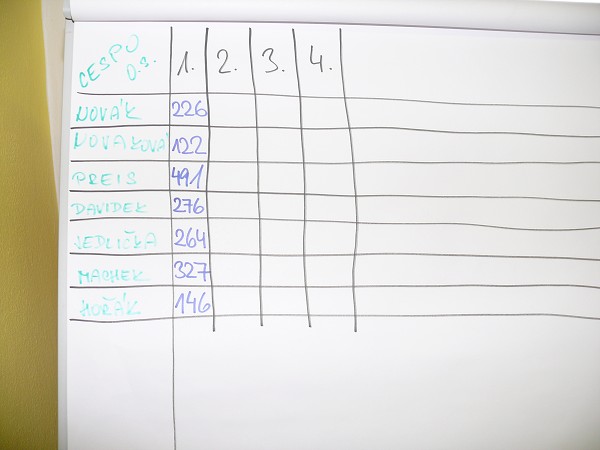 CESPU
O.S.
1. 2. 3. 4.
NOVÁK 226
NOVAKOVÁ 122
PREIS 491
DAVIDEK 276
JEDLIČKA 264
MACHEK 327
HOŘÁK 146